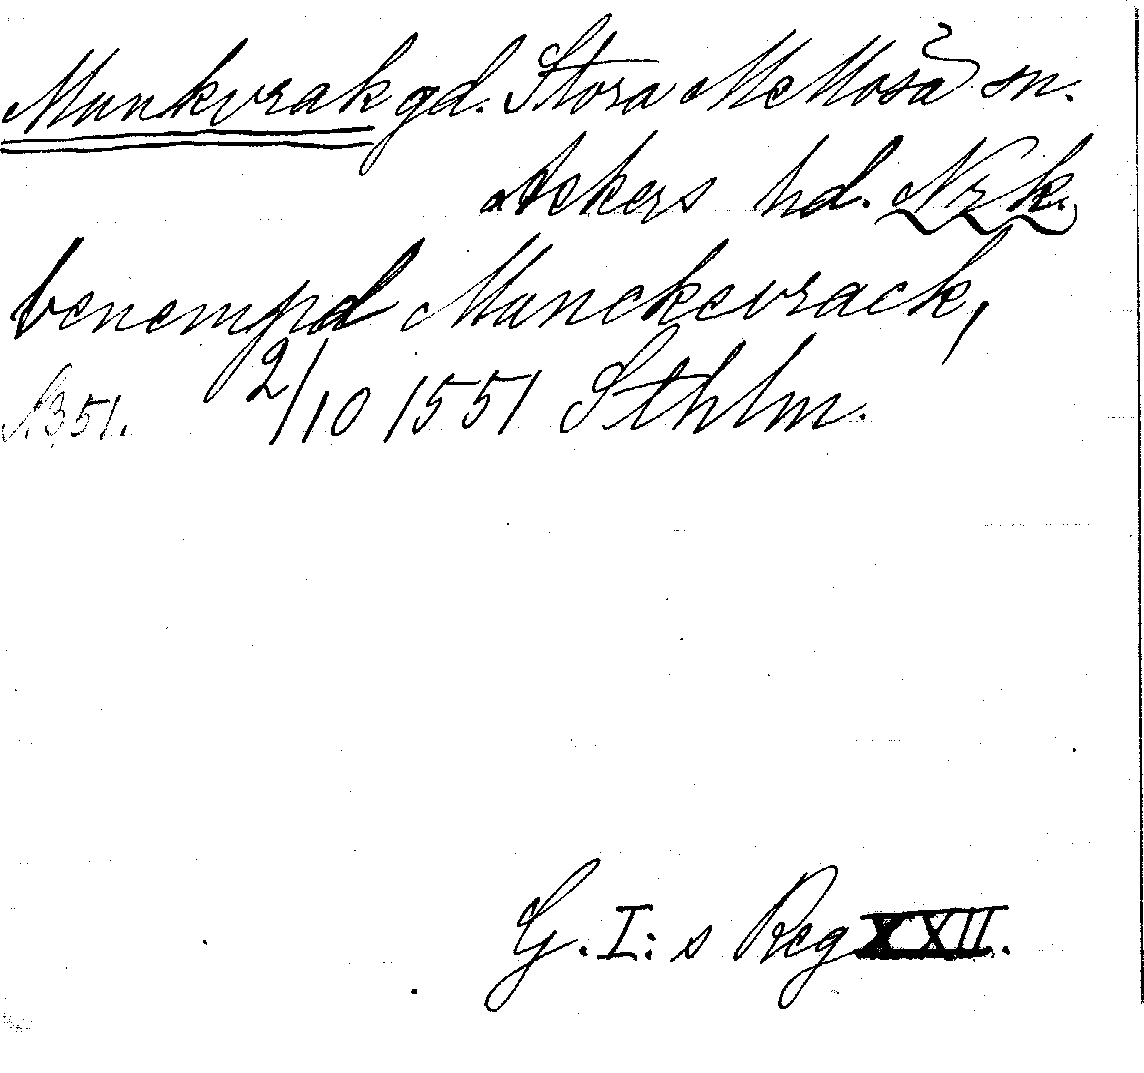 Munkvrak gd. Stora Mellösa sn.
Askers hd. Nrk.
benempd Munckevrack,
S. 351. 2/10 1551 Sthlm.
G. I:s Reg XXII.